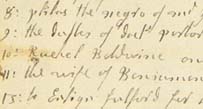 8: philos the negro of mr
9: the Dafter of doct porter
10: Rachel Baldwine on
11: the wife of Beniamen
13: to Ensign fulford for